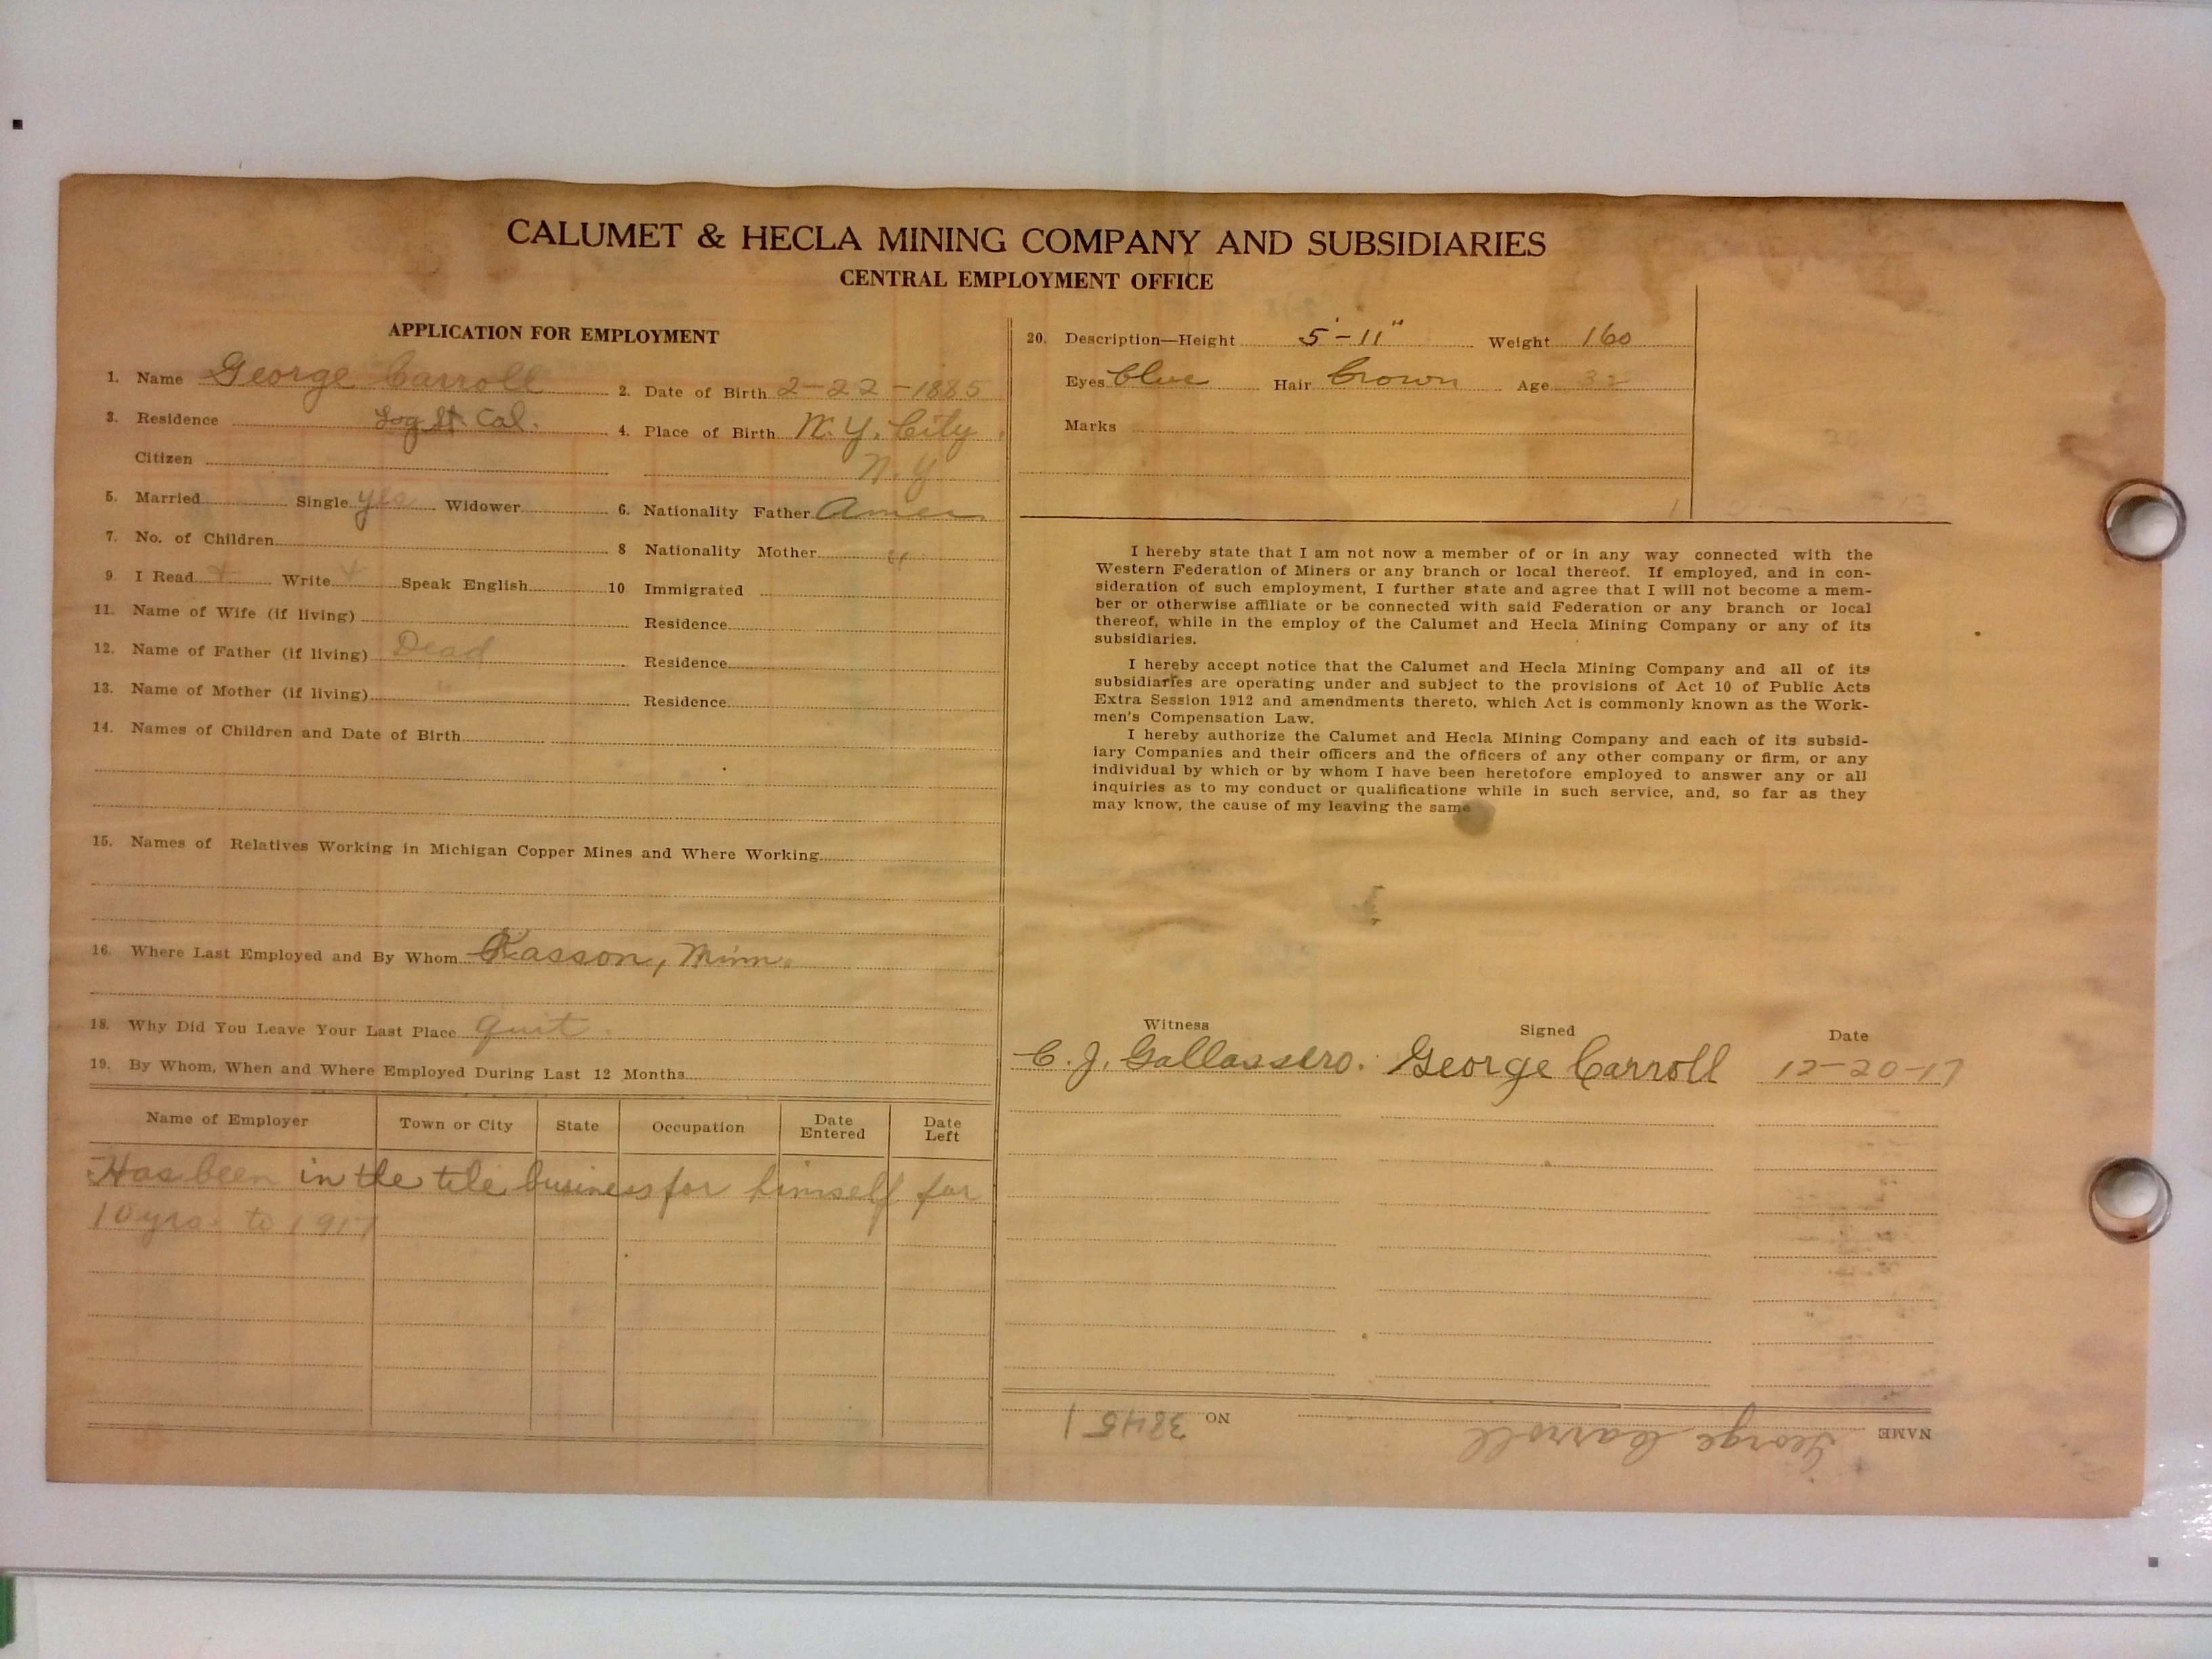 CALUMET & HECLA MINING COMPANY AND SUBSIDIARIES
CENTRAL EMPLOYMENT OFFICE
APPLICATION FOR EMPLOYMENT
1. Name George Carroll
2. Date of Birth 2-22-1885
3. Residence Log St. Cal.
4. Place of Birth N.Y. City
Citizen N.Y
5. Married Single yes Widower
6. Nationality Father Amer
7. No. of Children
8 Nationality Mother "
9. I Read + Write + Speak English
10 Immigrated
11. Name of Wife (if living) Residence
12. Name of Father (if living) Dead Residence
13. Name of Mother (if living) " Residence
14. Names of Children and Date of Birth
15. Names of Relatives Working in Michigan Copper Mines and Where Working
16. Where Last Employed and By Whom Kasson, Minn.
18. Why Did You Leave Your Last Place quit
19. By Whom, When and Where Employed During Last 12 Months
Name of Employer Town or City State Occupation Date Entered Date Left
Has been in the tile business for himself for
10 yrs. to 1917
20. Description—Height 5'-11" Weight 160
Eyes blue Hair brown Age 32
Marks
I hereby state that I am not now a member of or in any way connected with the
Western Federation of Miners or any branch or local thereof. If employed, and in con-
sideration of such employment, I further state and agree that I will not become a mem-
ber or otherwise affiliate or be connected with said Federation or any branch or local
thereof, while in the employ of the Calumet and Hecla Mining Company or any of its
subsidiaries.
I hereby accept notice that the Calumet and Hecla Mining Company and all of its
subsidiaries are operating under and subject to the provisions of Act 10 of Public Acts
Extra Session 1912 and amendments thereto, which Act is commonly known as the Work-
men's Compensation Law.
I hereby authorize the Calumet and Hecla Mining Company and each of its subsid-
iary Companies and their officers and the officers of any other company or firm, or any
individual by which or by whom I have been heretofore employed to answer any or all
inquiries as to my conduct or qualifications while in such service, and, so far as they
may know, the cause of my leaving the same
Witness Signed Date
C. J. George Carroll 12-20-17
NAME George Carroll NO 38451